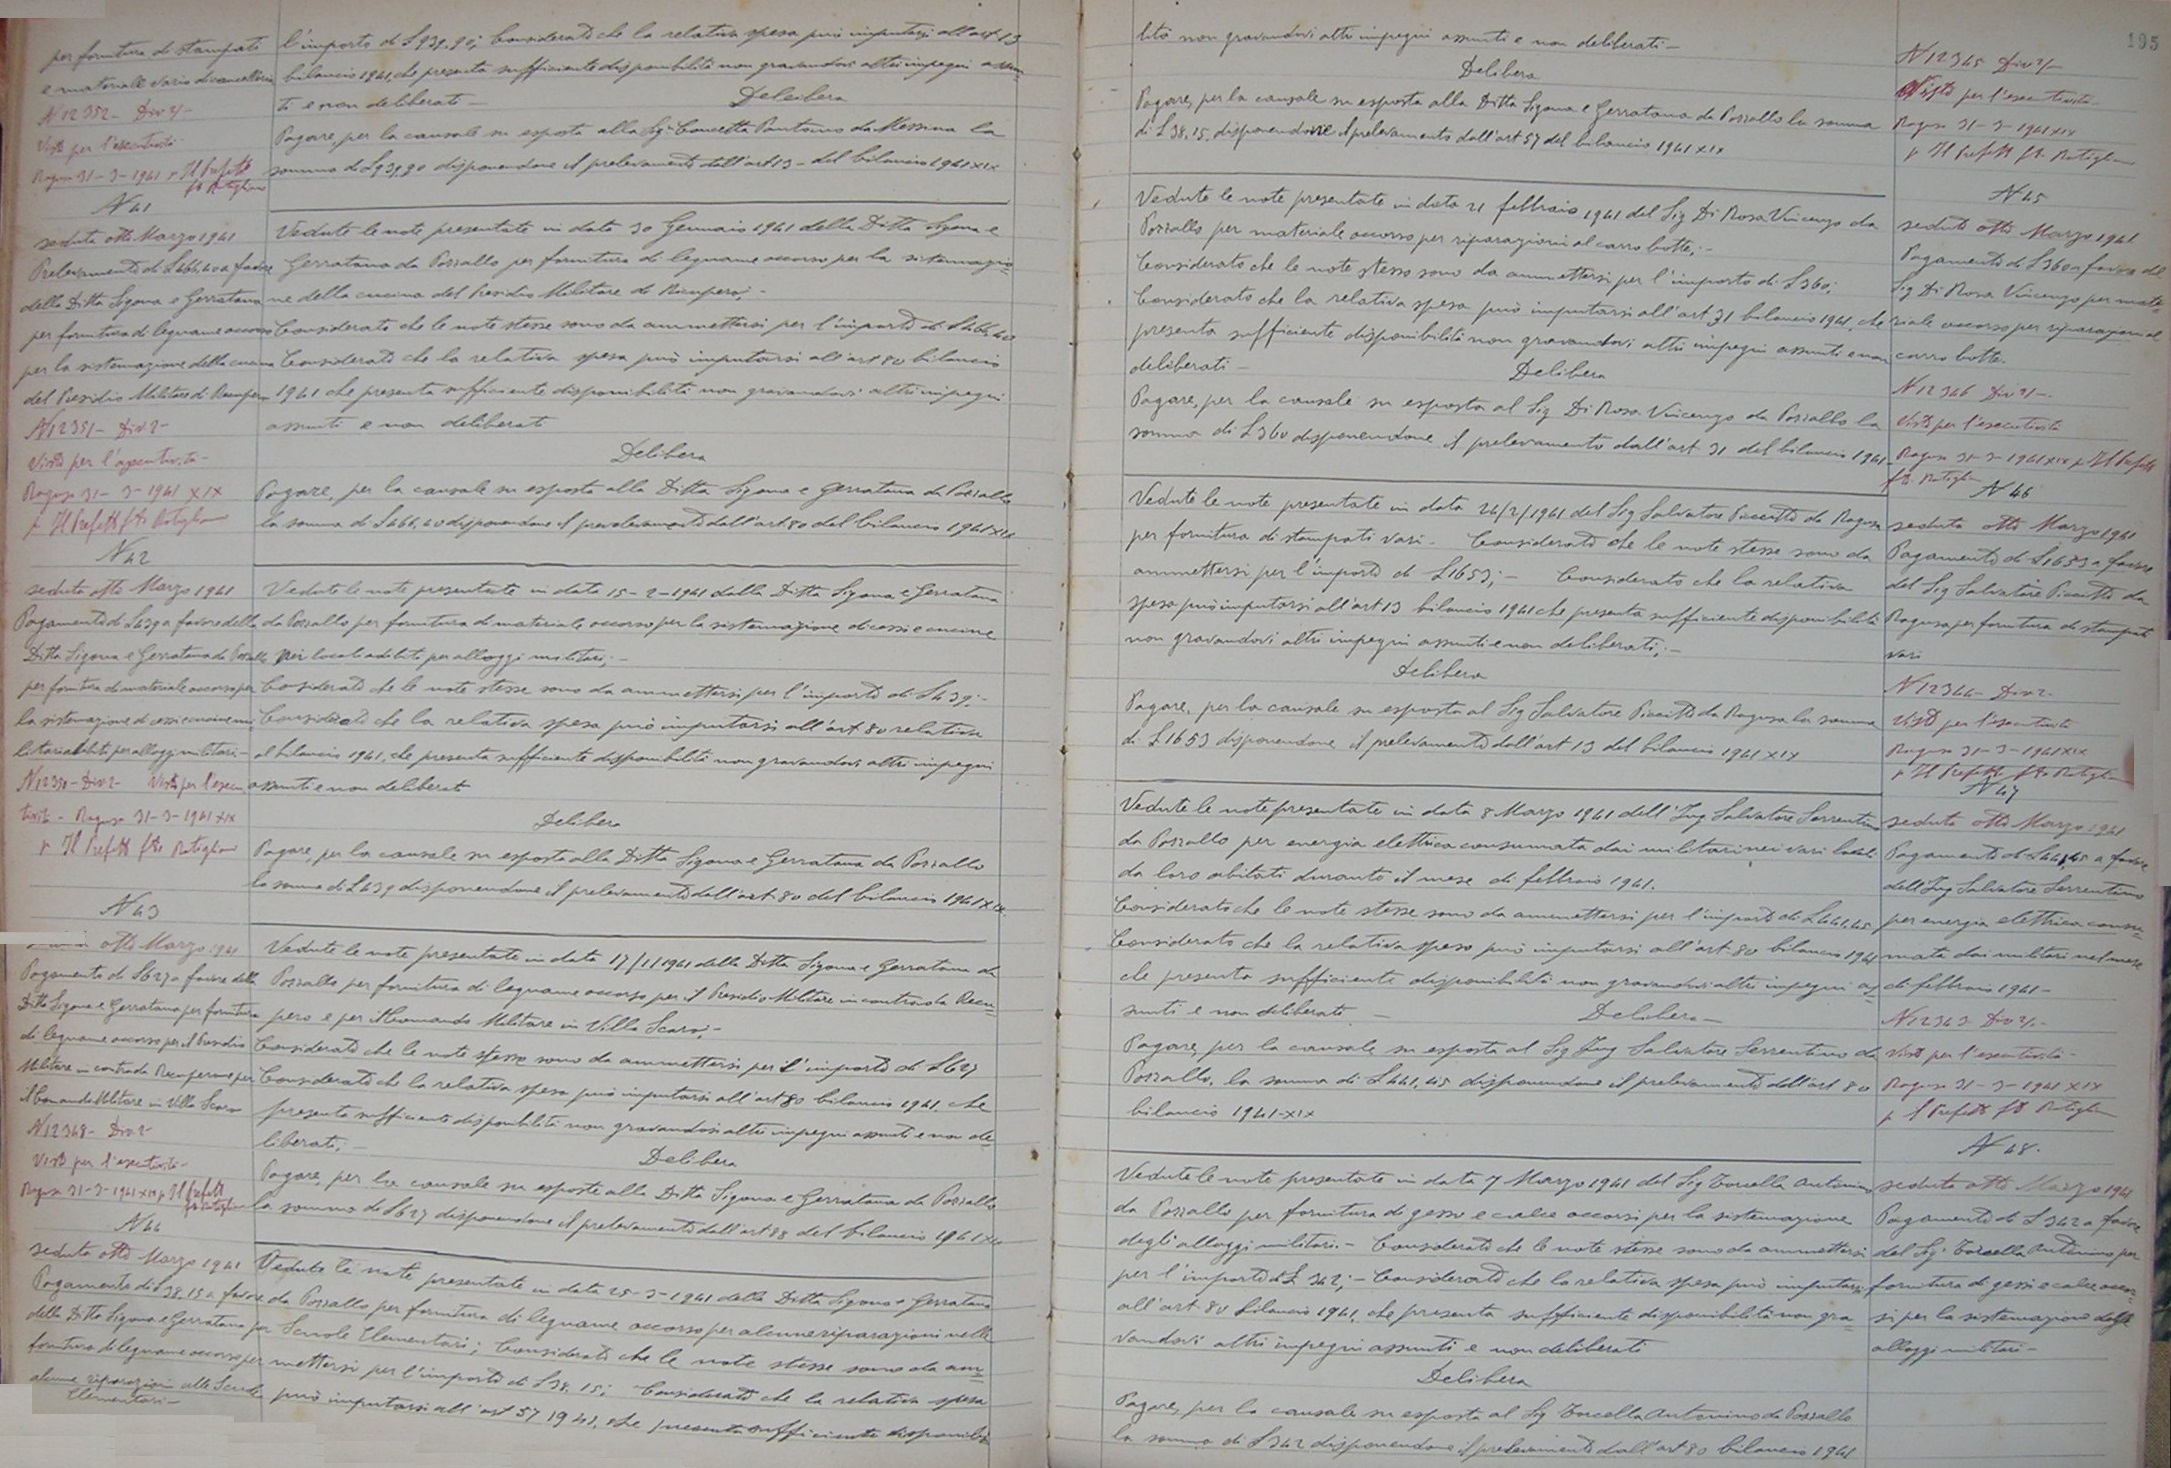 per fornitura di stampati
e materiale vario di cancelleria
N 12352 - Div 2/-
Visto per l'esecutività
Ragusa 31-3-1941 p Il Prefetto
N 41
seduta otto Marzo 1941
Prelevamento di L 466,40 a favore
della Ditta Sigona e Gerratana
per fornitura di legname occorso
per la sistemazione della cucina
del Presidio Militare di Recupero
N 12351 - Div 2-
Visto per l'esecutività-
Ragusa 31-3-1941 XIX
p Il Prefetto fto
N 42
seduta otto Marzo 1941
Pagamento di L 439 a favore della
Ditta Sigona e Gerratana da Pozzallo
per fornitura di materiale occorso per
la sistemazione di cessi e cucine mi
litari adibiti per alloggi militari-
N 12350 - Div 2- Visto per l'esecu
tività - Ragusa 31-3-1941 XIX
p Il Prefetto fto
N 43
otto Marzo 1941
Pagamento di L 627 a favore della
Ditta Sigona e Gerratana per fornitura
di legname occorso per il Presidio
Militare in contrada Recupero e per
il Comando Militare in Villa Scaro
N 12348 - Div 2-
Visto per l'esecutività-
Ragusa 31-3-1941 XIX p Il Prefetto
N 44
seduta otto Marzo 1941
Pagamento di L 38,15 a favore
della Ditta Sigona e Gerratana per
fornitura di legname occorso per
alcune riparazioni alle Scuole
Elementari-
l'importo di L 939,90; Considerato che la relativa spesa può imputarsi all'art 13
bilancio 1941, che presenta sufficiente disponibilità non gravandovi altri impegni assun
ti e non deliberati -
Delibera
Pagare, per la causale su esposta alla Sig. Concetta da Messina la
somma di L 939,90 disponendone il prelevamento dall'art 13 - del bilancio 1941 XIX
Vedute le note presentate in data 30 Gennaio 1941 della Ditta Sigona e
Gerratana da Pozzallo per fornitura di legname occorso per la sistemazio-
ne della cucina del Presidio Militare di Recupero; -
Considerato che le note stesse sono da ammettersi per l'importo di L 466,40
Considerato che la relativa spesa può imputarsi all'art 80 bilancio
1941 che presenta sufficiente disponibilità non gravandovi altri impegni
assunti e non deliberati
Delibera
Pagare, per la causale su esposta alla Ditta Sigona e Gerratana da Pozzallo
la somma di L 466,40 disponendone il prevelevamento dall'art 80 del bilancio 1941 XIX
Vedute le note presentate in data 15-2-1941 dalla Ditta Sigona e Gerratana
da Pozzallo per fornitura di materiale occorso per la sistemazione di cessi e cucine
per locali adibiti per alloggi militari; -
Considerato che le note stesse sono da ammettersi per l'importo di L 439; -
Considerato che la relativa spesa può imputarsi all'art 80 relativa
al bilancio 1941, che presenta sufficiente disponibilità non gravandovi altri impegni
assunti e non deliberat
Delibera
Pagare, per la causale su esposta alla Ditta Sigona e Gerratana da Pozzallo
la somma di L 439 disponendone il prelevamento dall'art 80 del bilancio 1941 XIX
Vedute le note presentate in data 17/1/1941 della Ditta Sigona e Gerratana da
Pozzallo per fornitura di legname occorso per il Presidio Militare in contrada Recu=
pero e per il Comando Militare in Villa Scaro; -
Considerato che le note stesse sono da ammettersi per l'importo di L 627
Considerato che la relativa spesa può imputarsi all'art 80 bilancio 1941 che
presenta sufficiente disponibilità non gravandovi altri impegni assunti e non de=
liberati; -
Delibera
Pagare, per la causale su esposta alla Ditta Sigona e Gerratana da Pozzallo
la somma di L 627 disponendone il prelevamento dall'art 88 del bilancio 1941 XIX
Vedute le note presentate in data 25-3-1941 della Ditta Sigona e Gerratana
da Pozzallo per fornitura di legname occorso per alcune riparazioni nelle
Scuole Elementari; Considerato che le note stesse sono da am=
mettersi per l'importo di L 38,15; Considerato che la relativa spesa
può imputarsi all'art 57 1941, che presenta sufficiente disponibi
195
lità non gravandovi altri impegni assunti e non deliberati -
Delibera
Pagare, per la causale su esposta alla Ditta Sigona e Gerratana da Pozzallo la somma
di L 38,15, disponendone il prelevamento dall'art 57 del bilancio 1941 XIX
Vedute le note presentate in data 21 febbraio 1941 del Sig Di Rosa Vincenzo da
Pozzallo per materiale occorso per riparazioni al carro botte; -
Considerato che le note stesse sono da ammettersi per l'importo di L 360;
Considerato che la relativa spesa può imputarsi all'art 31 bilancio 1941, che
presenta sufficiente disponibilità non gravandovi altri impegni assunti e non
deliberati -
Delibera
Pagare, per la causale su esposta al Sig Di Rosa Vincenzo da Pozzallo la
somma di L 360 disponendone il prelevamento dall'art 31 del bilancio 1941
Vedute le note presentate in data 24/2/1941 del Sig Salvatore Piccitto da Ragusa
per fornitura di stampati vari - Considerato che le note stesse sono da
ammettersi per l'importo di L 1653; - Considerato che la relativa
spesa può imputarsi all'art 13 bilancio 1941 che presenta sufficiente disponibilità
non gravandovi altri impegni assunti e non deliberati; -
Delibera
Pagare, per la causale su esposta al Sig Salvatore Piccitto da Ragusa la somma
di L 1653 disponendone il prelevamento dall'art 13 del bilancio 1941 XIX
Vedute le note presentate in data 8 Marzo 1941 dell'Ing Salvatore Sorrentino
da Pozzallo per energia elettrica consumata dai militari nei vari locali
da loro abitati durante il mese di febbraio 1941.
Considerato che le note stesse sono da ammettersi per l'importo di L 441,45
Considerato che la relativa spesa può imputarsi all'art 80 bilancio 1941
che presenta sufficiente disponibilità non gravandovi altri impegni as=
sunti e non deliberati -
Delibera -
Pagare, per la causale su esposta al Sig Ing Salvatore Sorrentino da
Pozzallo, la somma di L 441,45 disponendone il prelevamento dall'art 80
bilancio 1941-XIX
Vedute le note presentate in data 7 Marzo 1941 del Sig Torcella Antonino
da Pozzallo per fornitura di gesso e calce occorsi per la sistemazione
degli alloggi militari. - Considerato che le note stesse sono da ammettersi
per l'importo di L 342; - Considerato che la relativa spesa può imputarsi
all'art 80 bilancio 1941, che presenta sufficiente disponibilità non gra=
vandovi altri impegni assunti e non deliberati
Delibera
Pagare, per la causale su esposta al Sig Torcella Antonino da Pozzallo
la somma di L 342 disponendone il prelevamento dall'art 80 bilancio 1941
N 12345 Div 2/-
Visto per l'esecutività-
Ragusa 31-3-1941 XIX
p Il Prefetto fto
N 45
seduta otto Marzo 1941
Pagamento di L 360 a favore del
Sig Di Rosa Vincenzo per mate=
riale occorso per riparazioni al
carro botte.
N 12346 Div 2/-
Visto per l'esecutività
Ragusa 31-3-1941 XIX p Il Prefetto
N 46
seduta otto Marzo 1941
Pagamento di L 1653 a favore
del Sig Salvatore Piccitto da
Ragusa per fornitura di stampati
vari
N 12344 - Div 2-
Visto per l'esecutività
Ragusa 31-3-1941 XIX
p Il Prefetto fto
N 47
seduta otto Marzo 1941
Pagamento di L 441,45 a favore
dell'Ing Salvatore Sorrentino
per energia elettrica consu=
mata dai militari nel mese
di febbraio 1941 -
N 12343 Div 2/-
Visto per l'esecutività-
Ragusa 31-3-1941 XIX
p Il Prefetto fto
N 48.
seduta otto Marzo 1941
Pagamento di L 342 a favore
del Sig. Torcella Antonino per
fornitura di gessi e calce occor=
si per la sistemazione degli
alloggi militari -